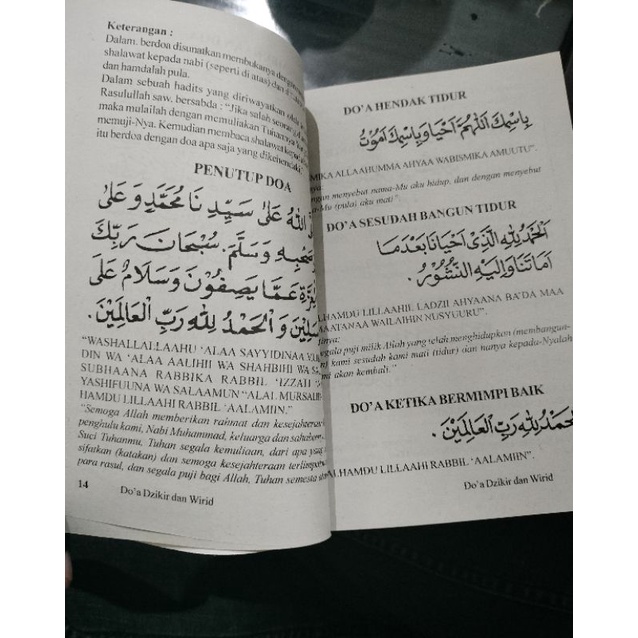 Keterangan :
Dalam berdoa disunatkan membukanya dengan
shalawat kepada nabi (seperti di atas) dan di
dan hamdalah pula.
Dalam sebuah hadits yang diriwayatkan oleh
Rasulullah saw, bersabda : "Jika salah seorang
maka mulailah dengan memuliakan Tuhannya
memuji-Nya. Kemudian membaca shalawat kepada
itu berdoa dengan doa apa saja yang dikehendaki."
PENUTUP DOA
اللهُ عَلَى سَيِّدِنَا مُحَمَّدٍ وَعَلَى
وَصَحْبِهِ وَسَلَّمَ. سُبْحَانَ رَبِّكَ
الْعِزَّةِ عَمَّا يَصِفُوْنَ وَسَلَامٌ عَلَى
وَالْحَمْدُ لِلّٰهِ رَبِّ الْعَالَمِيْنَ.
"WASHALLALLAAHU 'ALAA SAYYIDINAA
DIN WA 'ALAA AALIHII WA SHAHBIHI WA
SUBHAANA RABBIKA RABBIL 'IZZATI
YASHIFUUNA WA SALAAMUN "ALAL MURSALIIN
HAMDU LILLAAHI RABBIL 'AALAMIIN."
"Semoga Allah memberikan rahmat dan kesejahteraan
penghulu kami, Nabi Muhammad, keluarga dan sahabat
Suci Tuhanmu. Tuhan segala kemuliaan, dari apa yang
sifatkan (katakan) dan semoga kesejahteraan terlimpah
para rasul, dan segala puji bagi Allah, Tuhan semesta
14
Do'a Dzikir dan Wirid
DO'A HENDAK TIDUR
بِاسْمِكَ اللّٰهُمَّ اَحْيَا وَبِاسْمِكَ اَمُوْتُ
MIKA ALLAAHUMMA AHYAA WABISMIKA AMUUTU".
dengan menyebut nama-Mu aku hidup, dan dengan menyebut
(pula) aku mati".
DO'A SESUDAH BANGUN TIDUR
اَلْحَمْدُ لِلّٰهِ الَّذِيْ اَحْيَانَا بَعْدَمَا
اَمَاتَنَا وَاِلَيْهِ النُّشُوْرُ.
LHAMDU LILLAAHIL LADZII AHYAANA BA'DA MAA
AATANAA WAILAIHIN NUSYUURU".
segala puji milik Allah yang telah menghidupkan (membangun-
kami sesudah kami mati (tidur) dan hanya kepada-Nyalah
akan kembali."
DO'A KETIKA BERMIMPI BAIK
لِلّٰهِ رَبِّ الْعَالَمِيْنَ.
ALHAMDU LILLAAHI RABBIL 'AALAMIIN".
Do'a Dzikir dan Wirid